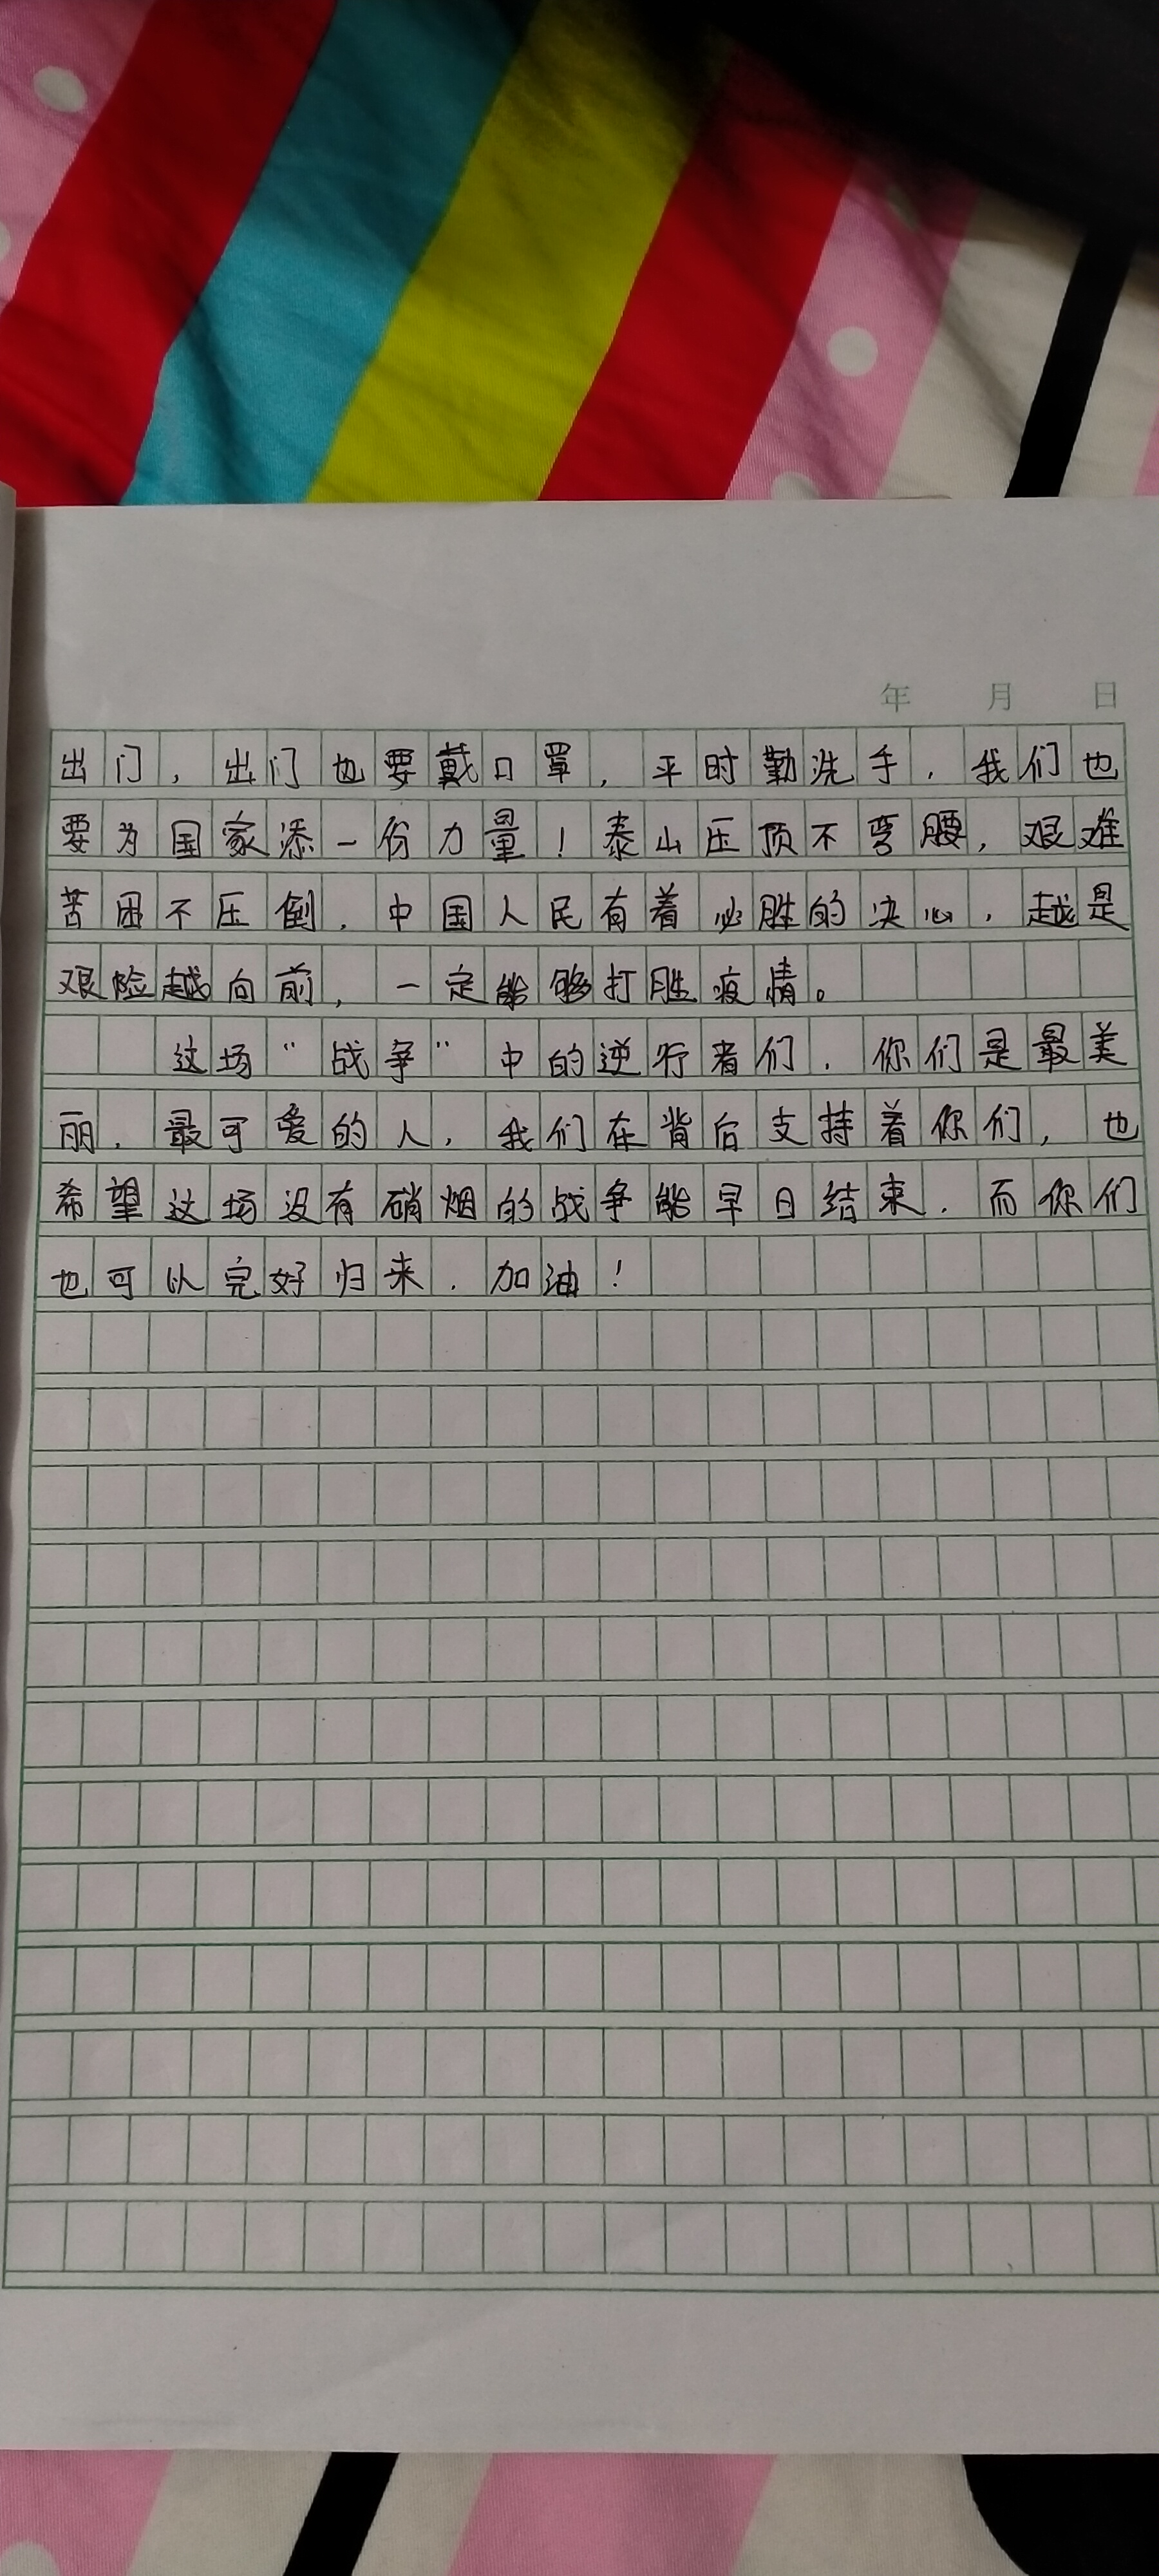 年 月 日
出门，出门也要戴口罩，平时勤洗手，我们也
要为国家添一份力量！泰山压顶不弯腰，艰难
苦困不压倒，中国人民有着必胜的决心，越是
艰险越向前，一定能够打胜疫情。
这场“战争”中的逆行者们，你们是最美
丽，最可爱的人，我们在背后支持着你们，也
希望这场没有硝烟的战争能早日结束，而你们
也可以完好归来，加油！